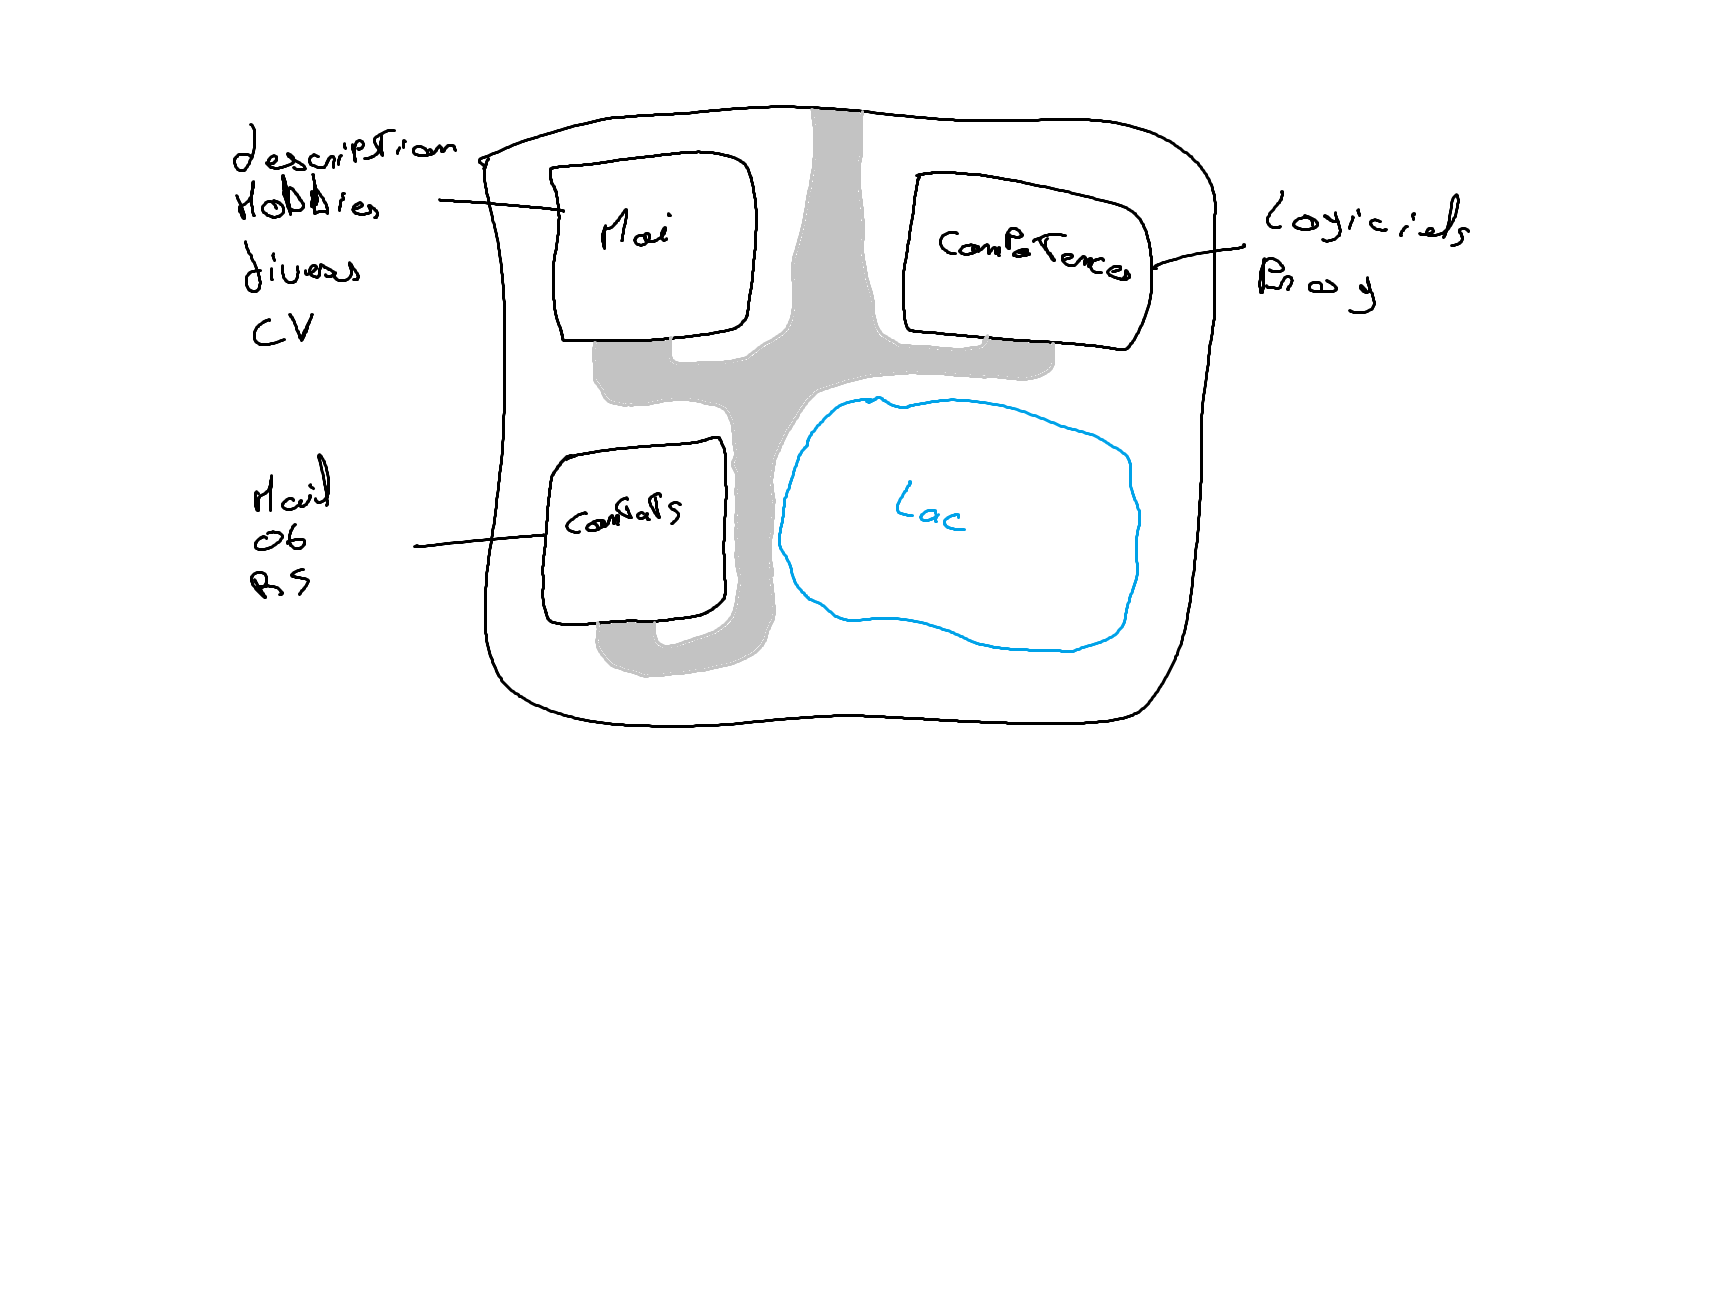 description
Hobbies
divers
CV
Moi
Competences
Logiciels
Mail
06
RS
Contats
Lac